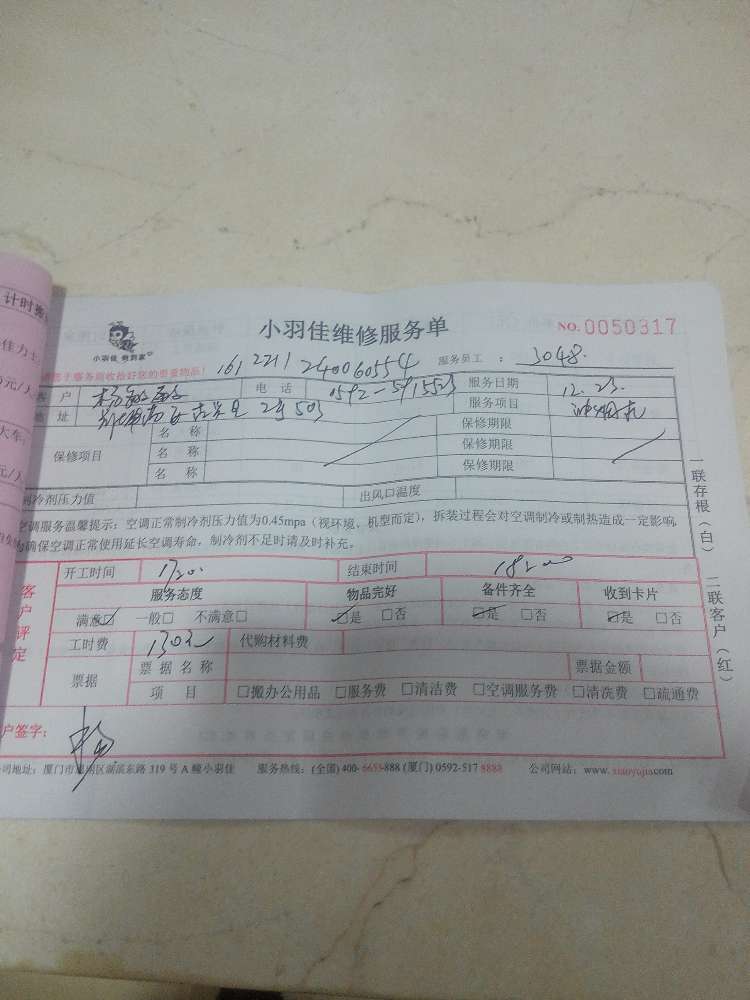 计时
小羽佳维修服务单 NO.0050317
小羽佳 帮到家
服务前收拾好您的贵重物品!
1612211240060554 服务员工: 3048.
户 电话 服务日期 12.23.
地址 2号503 服务项目
保修项目 名称 保修期限
名称 保修期限
名称 保修期限
制冷剂压力值 出风口温度
空调服务温馨提示:空调正常制冷剂压力值为0.45mpa(视环境、机型而定),拆装过程会对空调制冷或制热造成一定影响
确保空调正常使用延长空调寿命,制冷剂不足时请及时补充。
开工时间 结束时间
客户评定
服务态度 物品完好 备件齐全 收到卡片
满意☑ 一般□ 不满意□ ☑是 □否 ☑是 □否 ☑是 □否
工时费 130元 代购材料费
票据 票据名称 票据金额
项目 □搬办公用品 □服务费 □清洁费 □空调服务费 □清洗费 □疏通费
户签字:
司地址:厦门市思明区湖滨东路319号A幢小羽佳 服务热线:(全国)400-6653-888(厦门)0592-517 8888 公司网站:www.xiaoyujia.com
一联存根(白) 二联客户(红)